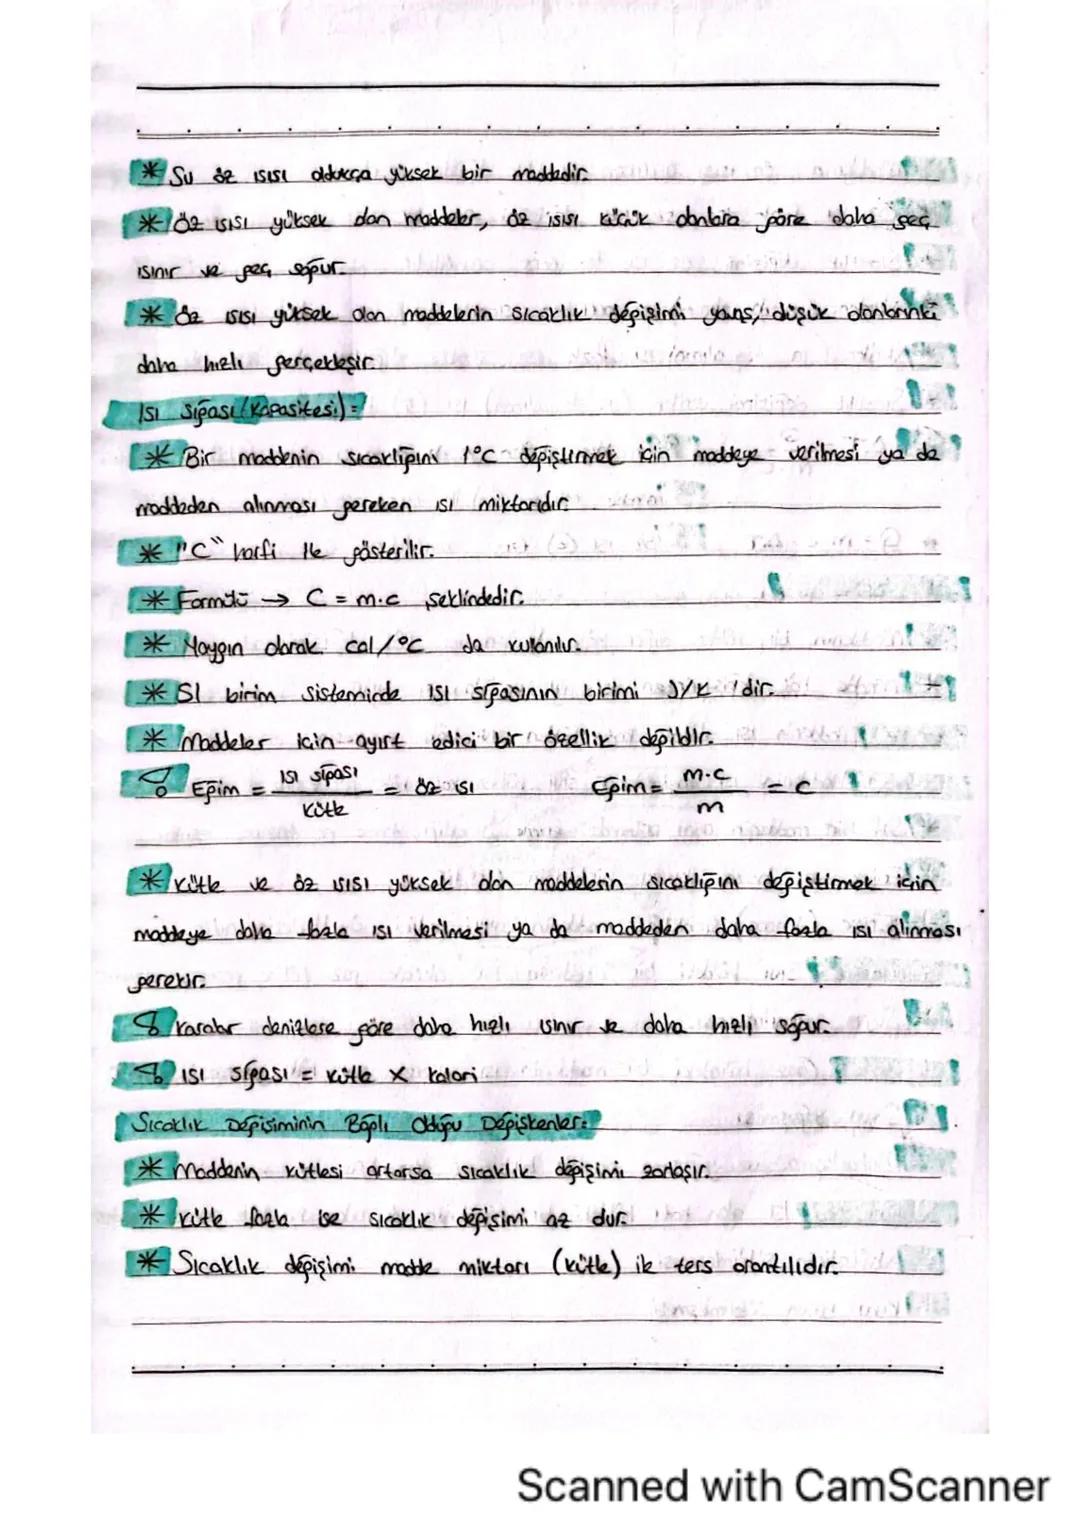 * Su öz ısısı oldukça yüksek bir maddedir.
* Öz ısısı yüksek olan maddeler, öz ısısı küçük olanlara göre daha geç
ısınır ve geç soğur.
* Öz ısısı yüksek olan maddelerin sıcaklık değişimi yavaş, düşük olanlarınki
daha hızlı gerçekleşir.
Isı Sığası (Kapasitesi) =
* Bir maddenin sıcaklığını 1°C değiştirmek için maddeye verilmesi ya da
maddeden alınması gereken ısı miktarıdır.
* "C" harfi ile gösterilir.
* Formülü → C = m.c şeklindedir.
* Yaygın olarak cal/°C da kullanılır.
* SI birim sisteminde ısı sığasının birimi J/K 'dir.
* Maddeler için ayırt edici bir özellik değildir.
Eğim = ısı sığası / kütle = öz ısı Eğim = m.c / m = c
* Kütle ve öz ısısı yüksek olan maddelerin sıcaklığını değiştirmek için
maddeye daha fazla ısı verilmesi ya da maddeden daha fazla ısı alınması
gerekir.
Karalar denizlere göre daha hızlı ısınır ve daha hızlı soğur.
ısı sığası = kütle x kalori
Sıcaklık Değişiminin Bağlı Olduğu Değişkenler:
* Maddenin kütlesi artarsa sıcaklık değişimi zorlaşır.
* Kütle fazla ise sıcaklık değişimi az dur.
* Sıcaklık değişimi madde miktarı (kütle) ile ters orantılıdır.
Scanned with CamScanner